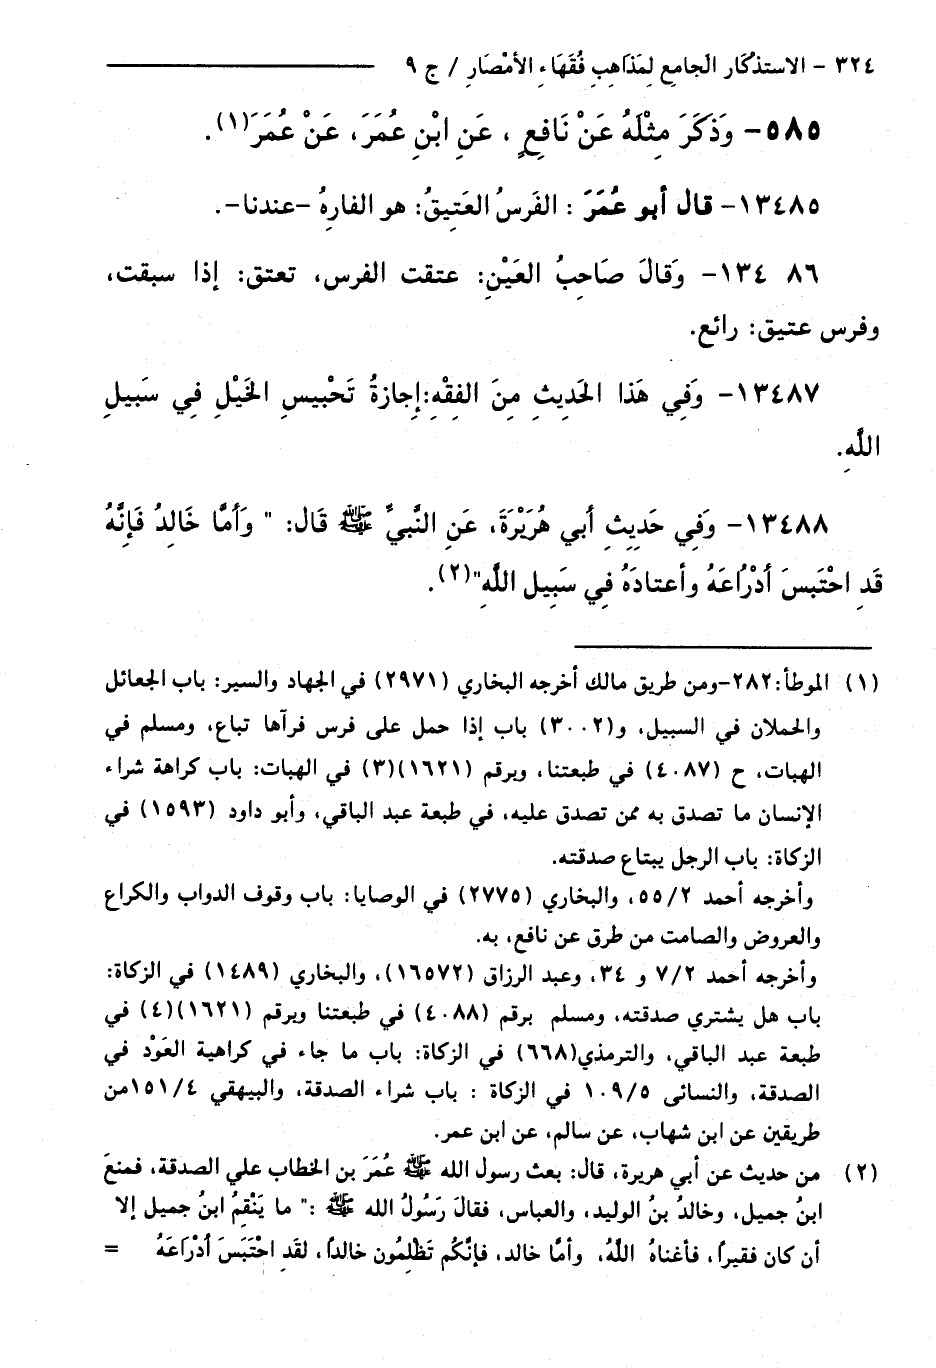 ٣٢٤ – الاستذكار الجامع لمذاهب فقهاء الأمصار / ج ٩
٥٨٥– وَذَكَرَ مِثْلَهُ عَنْ نَافِعٍ ، عَنِ ابْنِ عُمَرَ، عَنْ عُمَرَ(١).
١٣٤٨٥– قال أبو عُمَرَ : الفَرَسُ العَتِيقُ: هو الفارِهُ –عندنا–.
١٣٤٨٦– وَقَالَ صَاحِبُ العَيْنِ: عتقت الفرس، تعتق: إذا سبقت،
وفرس عتيق: رائع.
١٣٤٨٧– وَفِي هَذَا الحَدِيثِ مِنَ الفِقْهِ:إِجَازةُ تَحْبِيسِ الخَيْلِ فِي سَبِيلِ
اللَّهِ.
١٣٤٨٨– وَفِي حَدِيثِ أبي هُرَيْرَةَ، عَنِ النَّبيِّ ﷺ قَال: " وَأمَّا خَالِدُ فَإِنَّهُ
قَدِ احْتَبَسَ أَدْرُاعَهُ وأعتادَهُ فِي سَبِيل اللَّهِ"(٢).
(١) الموطأ:٢٨٢–ومن طريق مالك أخرجه البخاري (٢٩٧١) في الجهاد والسير: باب الجعائل
والحملان في السبيل، و(٣٠٠٢) باب إذا حمل على فرس فرآها تباع، ومسلم في
الهبات، ح (٤٠٨٧) في طبعتنا، وبرقم (١٦٢١)(٣) في الهبات: باب كراهة شراء
الإنسان ما تصدق به ممن تصدق عليه، في طبعة عبد الباقي، وأبو داود (١٥٩٣) في
الزكاة: باب الرجل يبتاع صدقته.
وأخرجه أحمد ٥٥/٢، والبخاري (٢٧٧٥) في الوصايا: باب وقوف الدواب والكراع
والعروض والصامت من طرق عن نافع، به.
وأخرجه أحمد ٧/٢ و ٣٤، وعبد الرزاق (١٦٥٧٢)، والبخاري (١٤٨٩) في الزكاة:
باب هل يشتري صدقته، ومسلم برقم (٤٠٨٨) في طبعتنا وبرقم (١٦٢١)(٤) في
طبعة عبد الباقي، والترمذي(٦٦٨) في الزكاة: باب ما جاء في كراهية العَوْد في
الصدقة، والنسائى ١٠٩/٥ في الزكاة : باب شراء الصدقة، والبيهقي ١٥١/٤من
طريقين عن ابن شهاب، عن سالم، عن ابن عمر.
(٢) من حديث عن أبي هريرة، قال: بعث رسول الله ﷺ عُمَرَ بن الخطاب علي الصدقة، فمنعَ
ابنُ جميل، وخالدُ بنُ الوليد، والعباس، فقالَ رَسُولُ الله ﷺ :" ما يَنْقِمُ ابنُ جميل إلا
أن كان فقيراً، فأغناهُ اللَّهُ، وأمَّا خالد، فإنَّكُم تَظْلِمُون خالداً، لقَدِ احْتَبَسَ أَدْرَاعَهُ =